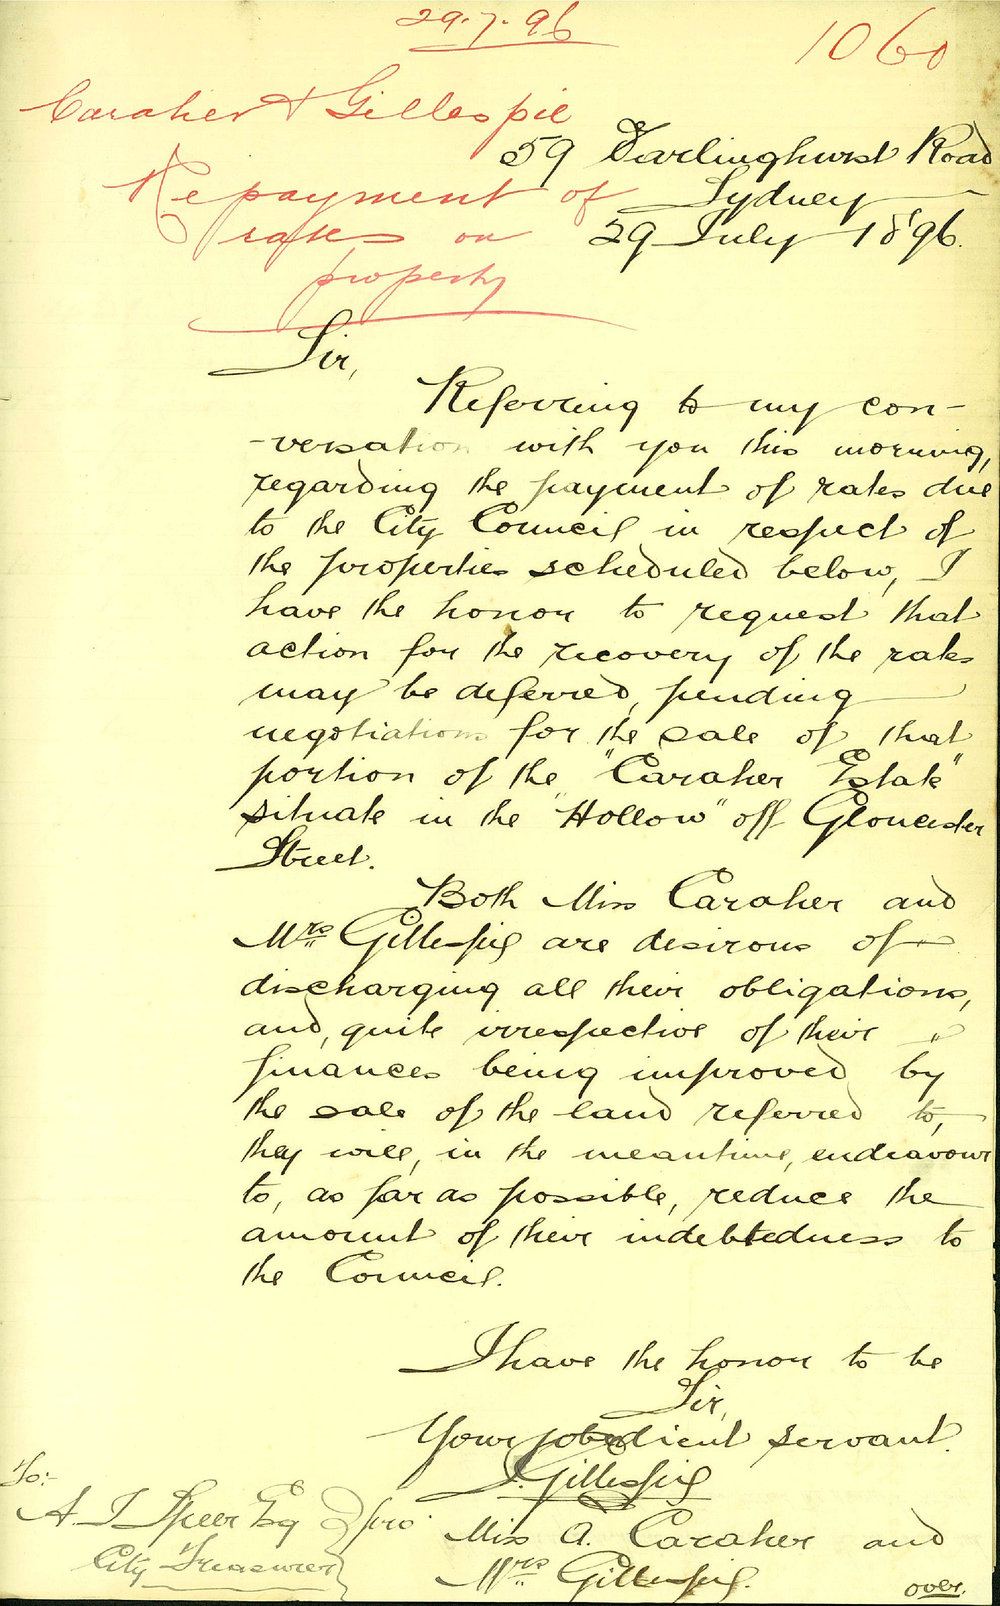 29.7.96
1060
Caraher & Gillespie
Repayment of
rates on
property
59 Darlinghurst Road
Sydney
29 July 1896.
Sir,
Referring to my con-
-versation with you this morning,
regarding the payment of rates due
to the City Council in respect of
the properties scheduled below, I
have the honor to request that
action for the recovery of the rates
may be deferred, pending
negotiations for the sale of that
portion of the "Caraher Estate"
situate in the "Hollow" off Gloucester
Street.
Both Miss Caraher and
Mrs Gillespie are desirous of
discharging all their obligations,
and, quite irrespective of their
finances being improved by
the sale of the land referred to,
they will, in the meantime, endeavour
to, as far as possible, reduce the
amount of their indebtedness to
the Council.
I have the honor to be
Sir,
Your obedient servant.
Gillespie
pro
Miss A. Caraher and
Mrs Gillespie.
To:-
A J Speer Esq
City Treasurer
over.